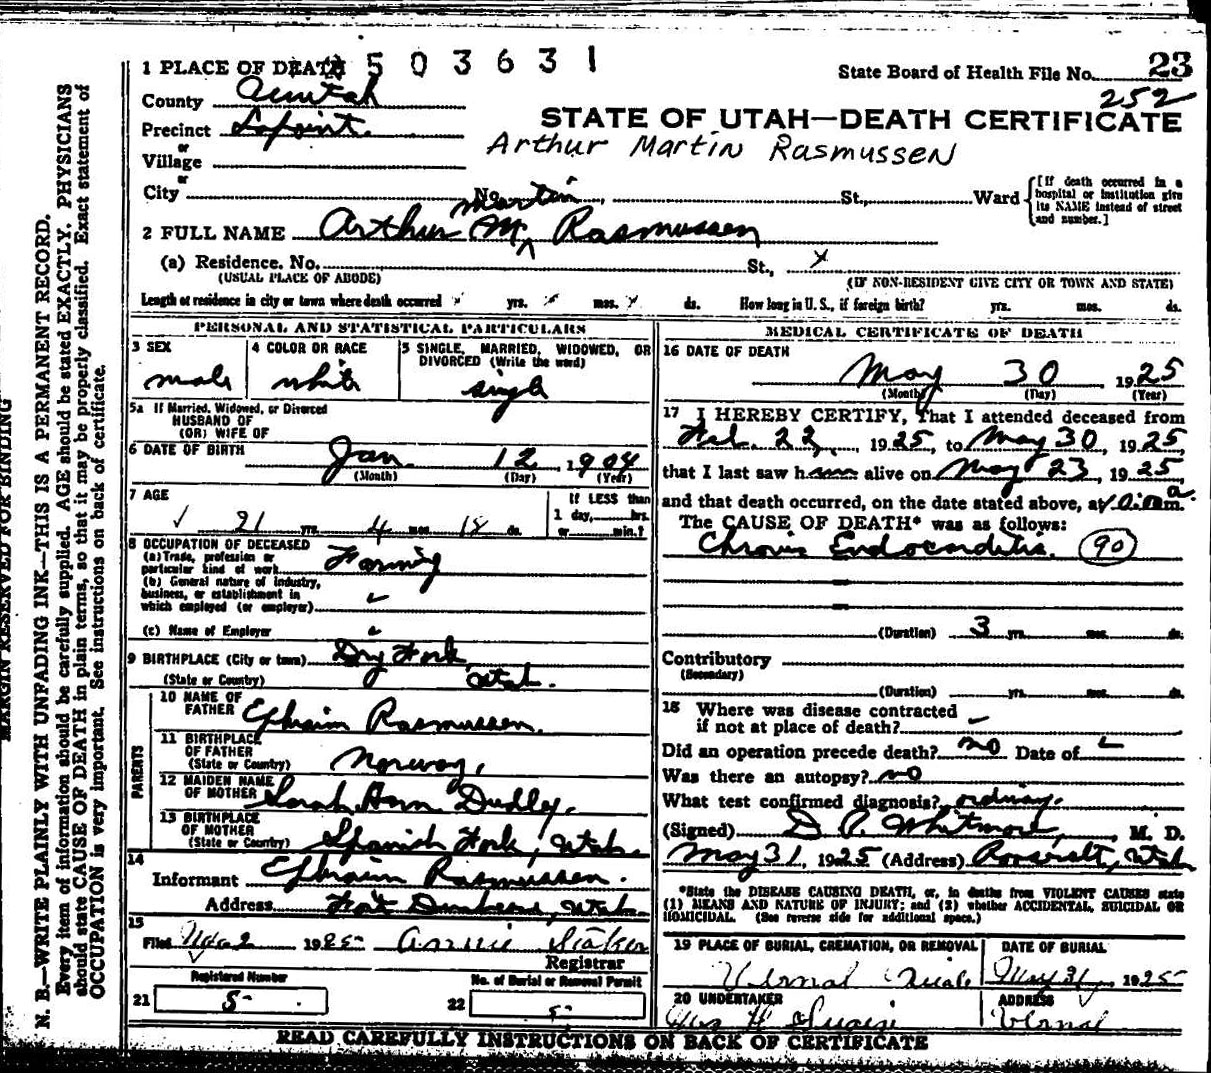 1 PLACE OF DEATH 2503631
State Board of Health File No. 23
252
County Uintah
STATE OF UTAH—DEATH CERTIFICATE
Precinct Lapoint.
Arthur Martin Rasmussen
or
Village
or
City No. , St., Ward
[If death occurred in a hospital or institution give its NAME instead of street and number.]
Martin
2 FULL NAME Arthur M. Rasmussen
(a) Residence. No. St.,
(USUAL PLACE OF ABODE) (IF NON-RESIDENT GIVE CITY OR TOWN AND STATE)
Length of residence in city or town where death occurred yrs. mos. ds. How long in U. S., if foreign birth? yrs. mos. ds.
PERSONAL AND STATISTICAL PARTICULARS
3 SEX
male
4 COLOR OR RACE
white
5 SINGLE, MARRIED, WIDOWED, OR DIVORCED (Write the word)
single
5a If Married, Widowed, or Divorced
HUSBAND OF
(OR) WIFE OF
6 DATE OF BIRTH Jan. 12 1904
(Month) (Day) (Year)
7 AGE
21 yrs. 4 mos. 18 ds.
If LESS than
1 day, hrs.
or min.?
8 OCCUPATION OF DECEASED
(a) Trade, profession or
particular kind of work Farming
(b) General nature of industry,
business, or establishment in
which employed (or employer)
(c) Name of Employer
9 BIRTHPLACE (City or town) Dry Fork
(State or Country) Utah.
PARENTS
10 NAME OF
FATHER Ephraim Rasmussen.
11 BIRTHPLACE
OF FATHER
(State or Country) Norway,
12 MAIDEN NAME
OF MOTHER Sarah Ann Dudley.
13 BIRTHPLACE
OF MOTHER
(State or Country) Spanish Fork, Utah.
14
Informant Ephraim Rasmussen.
Address Fort Duchesne, Utah.
15
Filed 1925 Annie
Registrar
Registered Number
21 5
No. of Burial or Removal Permit
22 5
MEDICAL CERTIFICATE OF DEATH
16 DATE OF DEATH
May 30 1925
(Month) (Day) (Year)
17 I HEREBY CERTIFY, That I attended deceased from
Feb. 22, 1925, to May 30, 1925,
that I last saw him alive on May 23, 1925,
and that death occurred, on the date stated above, at m.
The CAUSE OF DEATH* was as follows:
Chronic Endocarditis. 90
(Duration) 3 yrs. mos. ds.
Contributory
(Secondary)
(Duration) yrs. mos. ds.
18 Where was disease contracted
if not at place of death?
Did an operation precede death? no Date of
Was there an autopsy? no
What test confirmed diagnosis? ordinary.
(Signed) D. P. Whitmore, M. D.
May 31, 1925 (Address) Roosevelt, Utah
*State the DISEASE CAUSING DEATH, or, in deaths from VIOLENT CAUSES state
(1) MEANS AND NATURE OF INJURY; and (2) whether ACCIDENTAL, SUICIDAL OR
HOMICIDAL. (See reverse side for additional space.)
19 PLACE OF BURIAL, CREMATION, OR REMOVAL
Vernal
DATE OF BURIAL
May 31, 1925
20 UNDERTAKER
ADDRESS
Vernal
READ CAREFULLY INSTRUCTIONS ON BACK OF CERTIFICATE
MARGIN RESERVED FOR BINDING
N. B.—WRITE PLAINLY WITH UNFADING INK—THIS IS A PERMANENT RECORD.
Every item of information should be carefully supplied. AGE should be stated EXACTLY. PHYSICIANS
should state CAUSE OF DEATH in plain terms, so that it may be properly classified. Exact statement of
OCCUPATION is very important. See instructions on back of certificate.